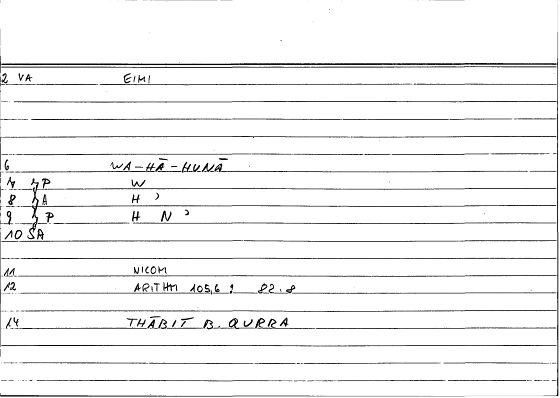 2 VA EIMI
6 WA-HĀ-HUNĀ
7 P W
8 A H ʾ
9 P H N ʾ
10 SA
11 NICOM
12 ARITHM 105,6 ; 82.8
14 THĀBIT B. QURRA